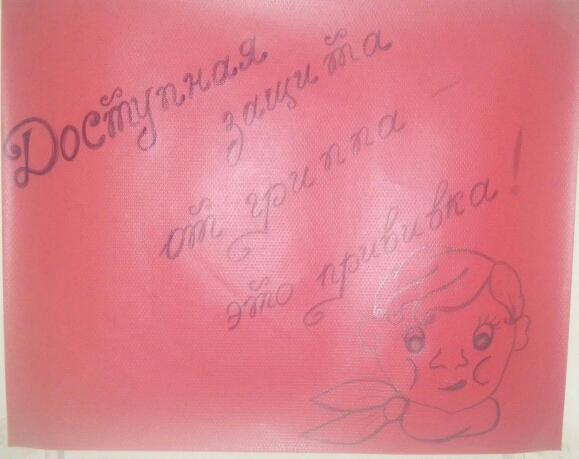 Доступная
защита
от гриппа –
это прививка!